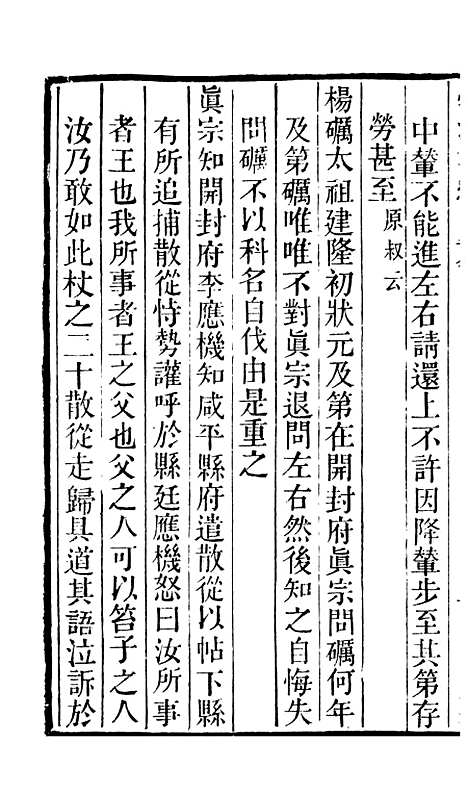 中輦不能進左右請還上不許因降輦步至其第存
勞甚至原叔云
楊礪太祖建隆初狀元及第在開封府眞宗問礪何年
及第礪唯唯不對眞宗退問左右然後知之自悔失
問礪不以科名自伐由是重之
眞宗知開封府李應機知咸平縣府遣散從以帖下縣
有所追捕散從恃勢讙呼於縣廷應機怒曰汝所事
者王也我所事者王之父也父之人可以笞子之人
汝乃敢如此杖之二十散從走歸具道其語泣訴於